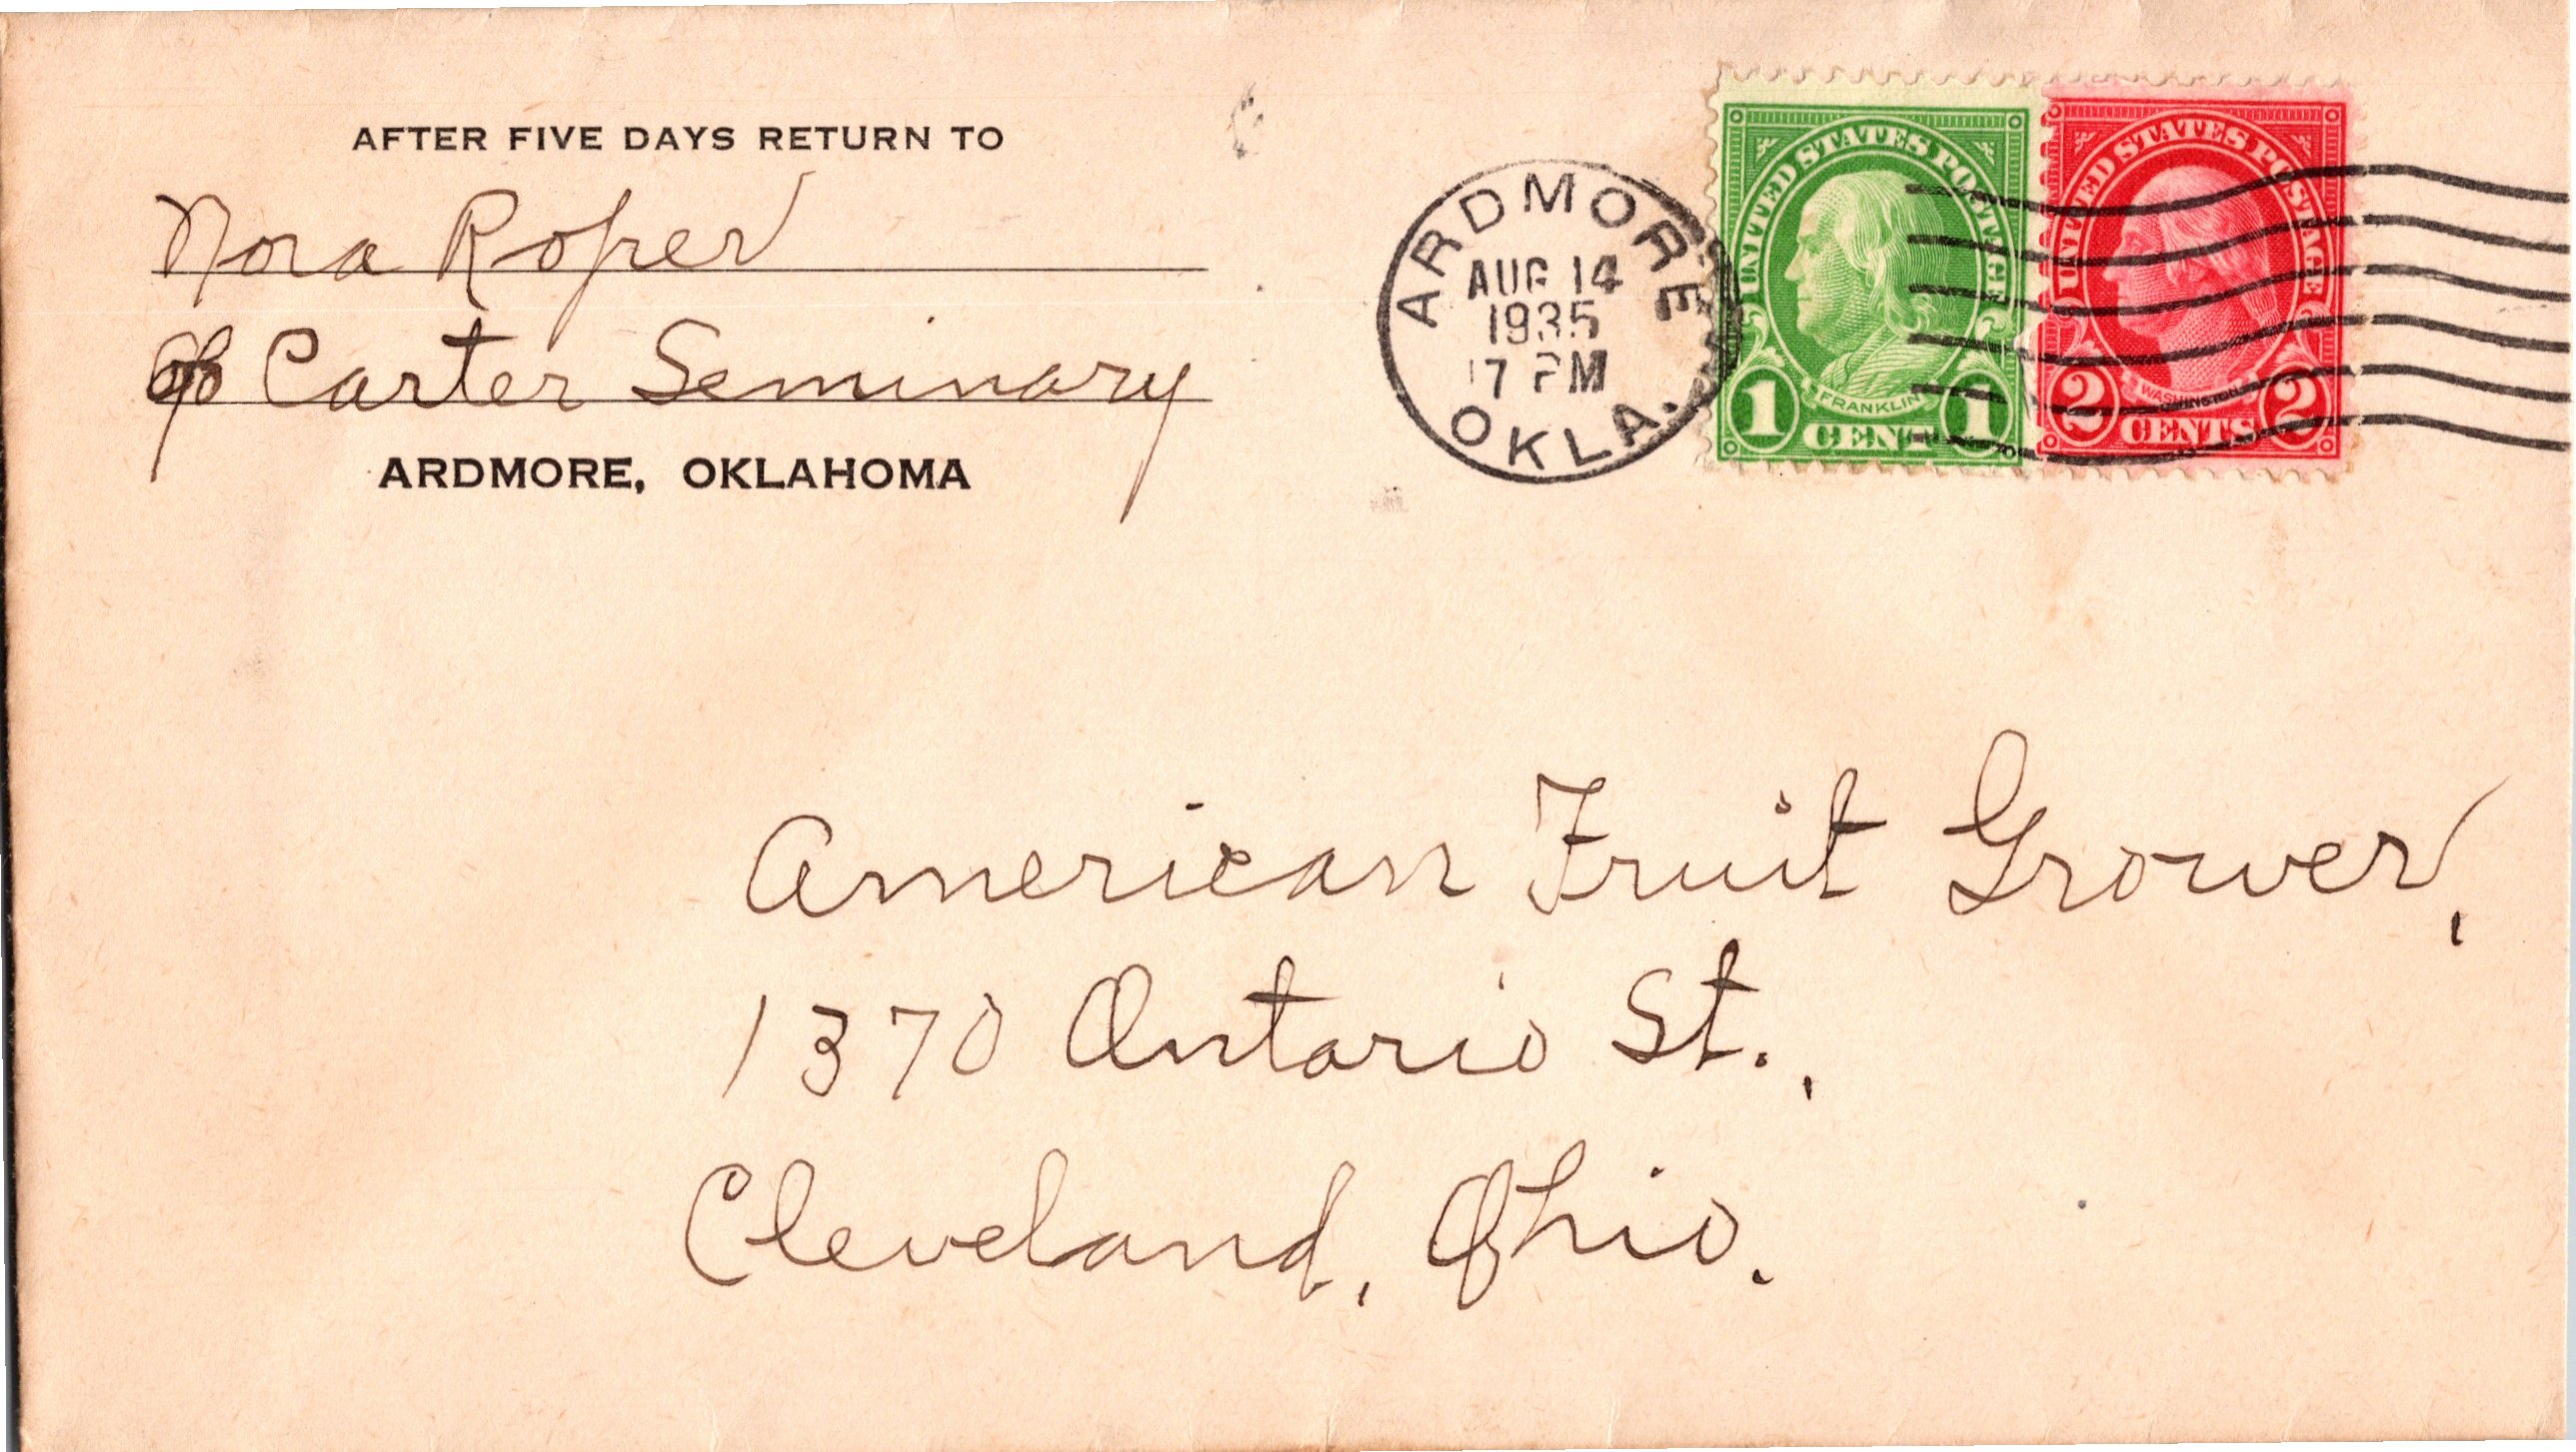 AFTER FIVE DAYS RETURN TO
Nora Roper
c/o Carter Seminary
ARDMORE, OKLAHOMA
ARDMORE
AUG 14
1935
7 PM
OKLA.
UNITED STATES POSTAGE
FRANKLIN
1 CENT 1
UNITED STATES POSTAGE
WASHINGTON
2 CENTS 2
American Fruit Grower,
1370 Ontario St.,
Cleveland, Ohio.